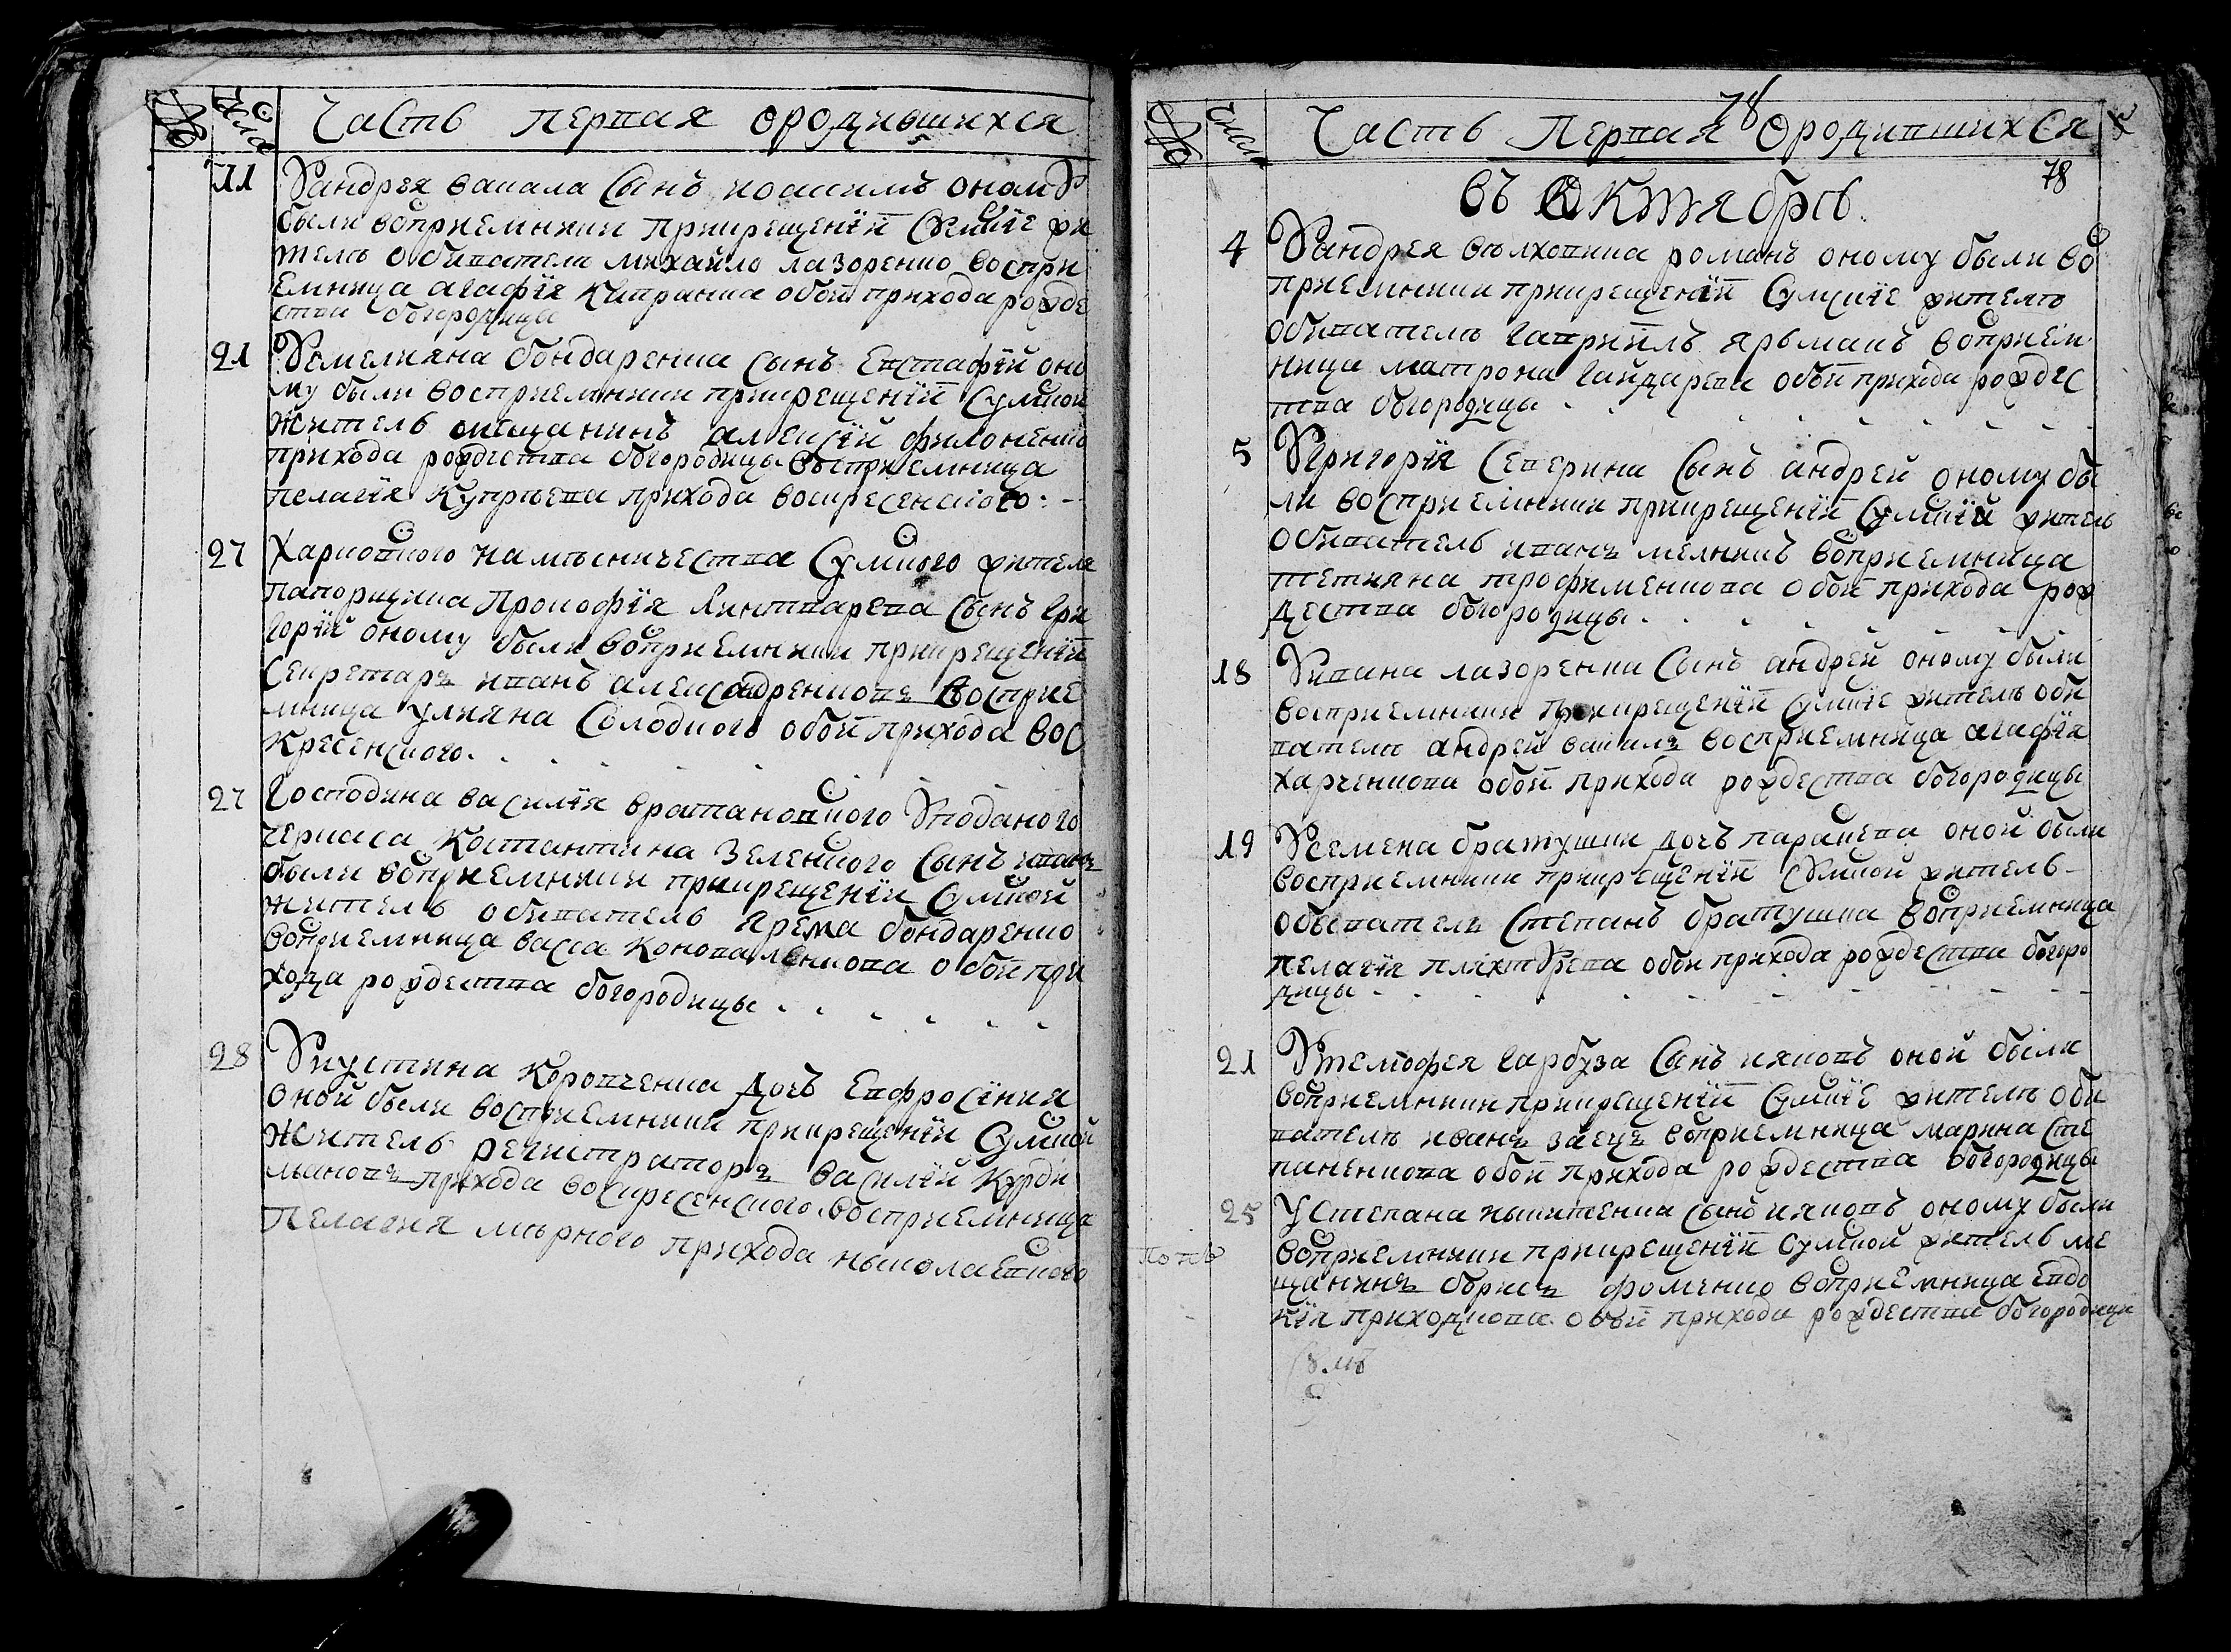 №
Числа
Часть первая ородившихся
11
Уандрея вакала сынъ иоакимъ оному
были восприемники прикрещенїи Сумские жи
тель обиватели михайло лазоренко воспри
емница агафїя капранка обои прихода рожде
ства богородицы
21
Уемелияна бондаренка сынъ Евстафїй оно
му были восприемники прикрещенїи Сумской
житель мещанинъ алексїй филоненко
прихода рождества богородицы восприемница
пелагїя Купрѣева прихода воскресенского
27
Харковского намѣсничества Сумского жителя
папорщика Прокофїя Линтварева сынъ Гри
горїй оному были восприемники прикрещенїи
Секретаръ иванъ александренковъ восприе
мница улияна Солодкого обои прихода вос
кресенского
27
Господина василїя вратановского Уподаного
черкаса Костантина Зеленского сынъ иванъ
были восприемники прикрещенїи Сумской
житель обиватель Ярема бондаренко
восприемница васса Коновалѣнкова обои при
хода рождества богородицы
28
Уиустина Коровченка дочъ Евфросїния
оной были восприемники прикрещенїи Сумской
житель регистраторъ василїй Курди
мановъ прихода воскресенского восприемница
Пелагия мѣрного прихода николаевского
№
Числа
Часть Первая ородившихся
78
78
въ Октябрѣ
4
Уандрея волховика романъ оному были вос
приемники прикрещенїи Сумские жители
обиватель гавриилъ ярьмакъ восприем
ница матрона гайдарева обои прихода рождес
тва богородицы
5
Угригорїя Северина сынъ андрей оному бы
ли восприемники прикрещенїи Сумскїй житель
обиватель иванъ мелникъ восприемница
тетияна трофименкова обои прихода рож
дества богородицы
18
Уивана лазоренки сынъ андрей оному были
восприемники прикрещенїи Сумские жители оби
ватели андрей вакилъ восприемница агафїя
харченкова обои прихода рождества богородицы
19
Усемена братушки дочъ параскева оной были
восприемники прикрещенїи Сумской житель
обыватель Степанъ братушка восприемница
пелагїя плахтѣрева обои прихода рождества богоро
дицы
21
Утемофея гарбуза сынъ ияковъ оной были
восприемники прикрещенїи Сумские жители оби
ватель иванъ заецъ восприемница марина сте
паненкова обои прихода рождества богородицы
25
У Степана никитенка сынъ ияковъ оному были
восприемники прикрещенїи Сумской житель ме
щанинъ борисъ фоменко восприемница Евдо
кїя приходкова обои прихода рождества богородици